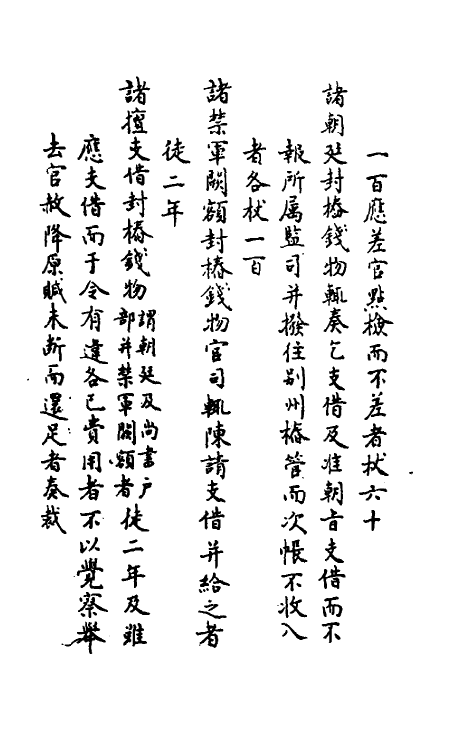 一百應差官點檢而不差者杖六十
諸朝廷封樁錢物輒奏乞支借及准朝旨支借而不
報所属監司并撥往别州樁管而次帳不收入
者各杖一百
諸禁軍闕額封樁錢物官司輒陳請支借并給之者
徒二年
諸擅支借封樁錢物謂朝廷及尚書户部并禁軍闕額者徒二年及雖
應支借而于令有違各已費用者不以覺察舉
去官赦降原贓未斷而還足者奏裁